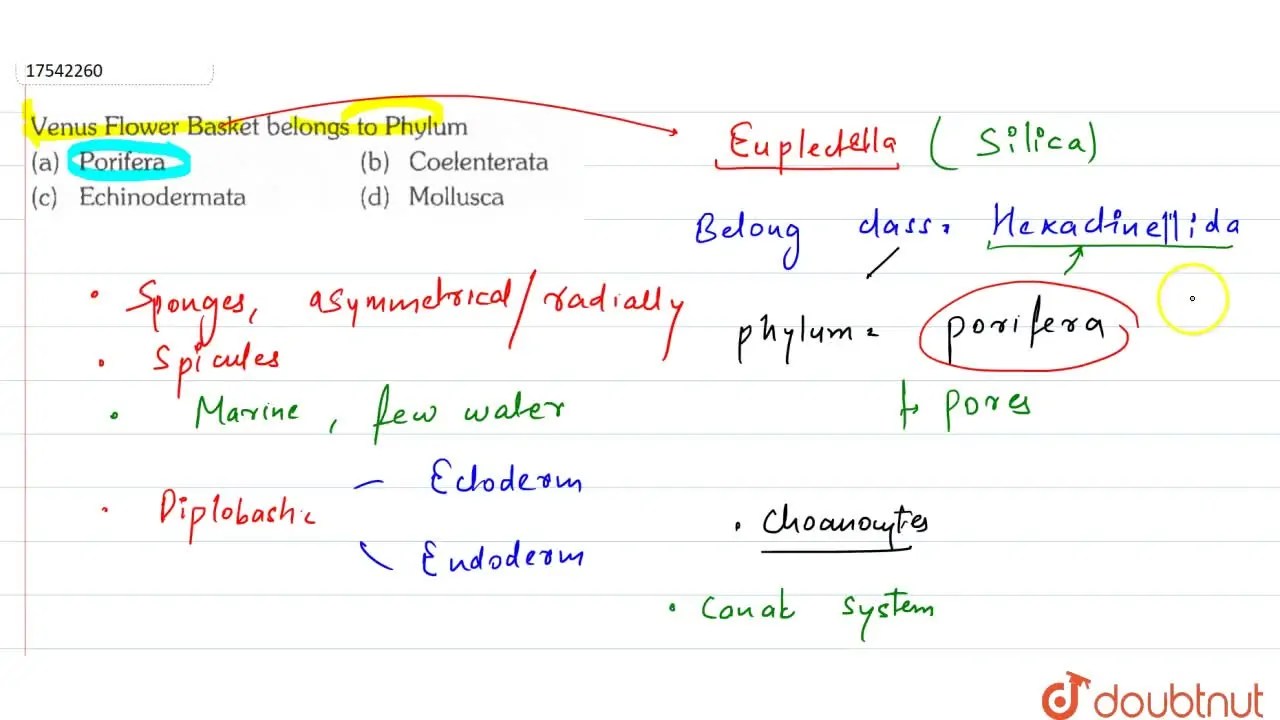 17542260
Venus Flower Basket belongs to Phylum
(a) Porifera (b) Coelenterata
(c) Echinodermata (d) Mollusca
Euplectella (Silica)
Belong class = Hexactinellida
phylum = porifera
↳ Pores
• Sponges, asymmetrical/radially
• Spicules
• Marine, few water
• Diplobastic
Ectoderm
Endoderm
• Choanocytes
• Canal system
doubtnut